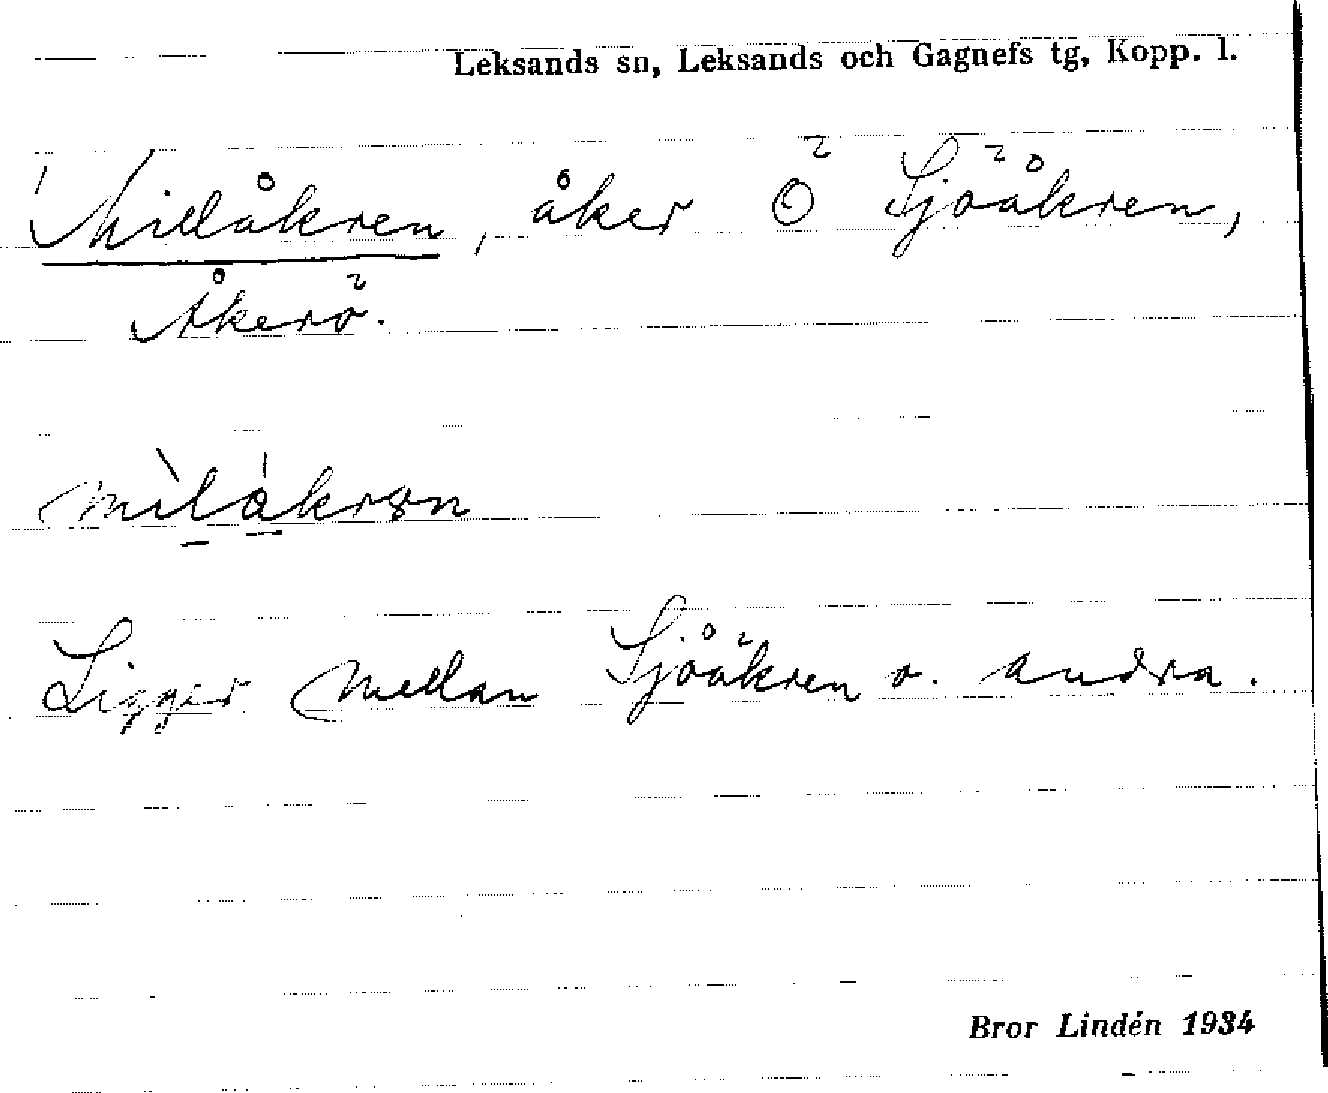 Leksands sn, Leksands och Gagnefs tg, Kopp. l.
Millåkren, åker Ö Sjöåkren,
Åkerö.
mìlåkrən
Ligger mellan Sjöåkren o. andra.
Bror Lindén 1934